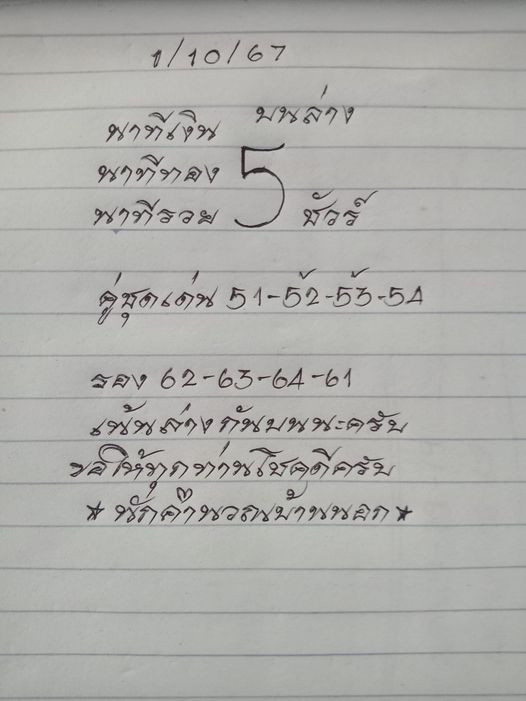 1/10/67
บนล่าง
นาทีเงิน
นาทีทอง 5
นาทีรวย ชัวร์
คู่ชุดเด่น 51-52-53-54
รอง 62-63-64-61
เน้นล่างกันบนนะครับ
ขอให้ทุกท่านโชคดีครับ
★ นักคำนวณบ้านนอก ★